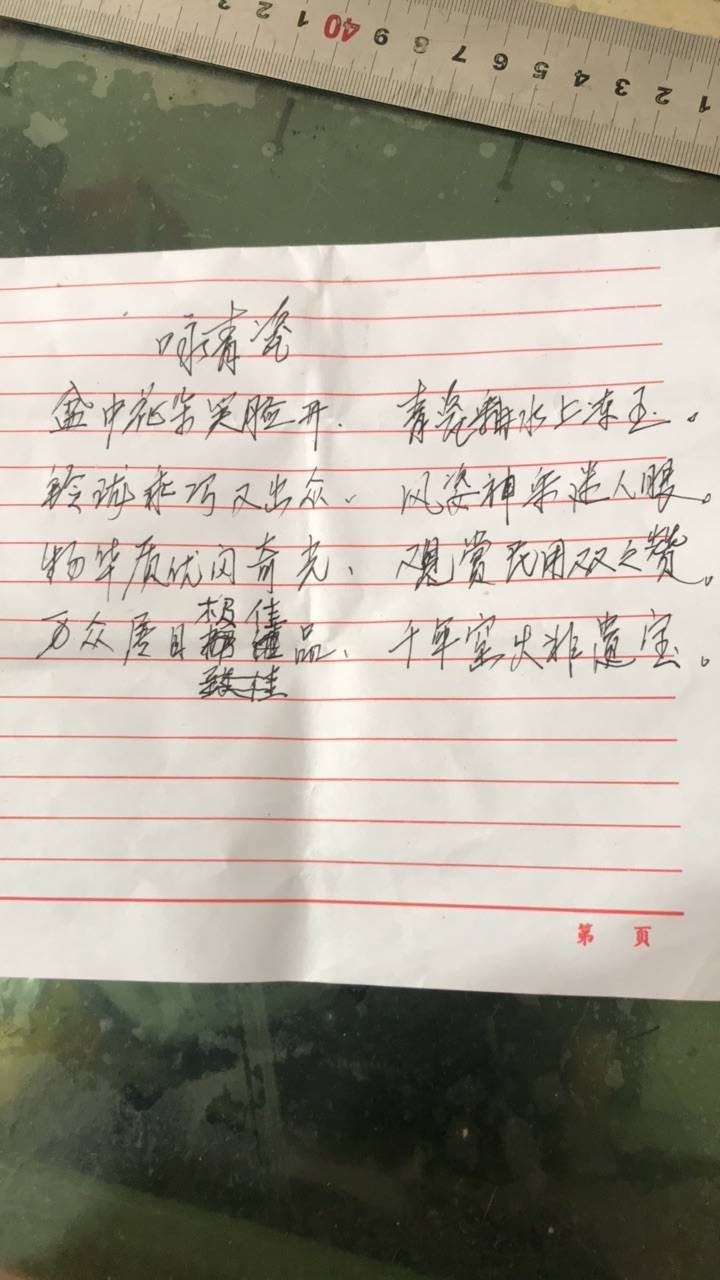 1 2 3 4 5 6 7 8 9 40 1 2 3
咏青瓷
盛中花朵笑脸开. 青瓷水上冻玉。
玲珑乖巧又出众、风姿神采迷人眼。
物华质优闪奇光、观赏民用双之赞。
万众瞩目极佳品、千年窑火非遗宝。
第 页